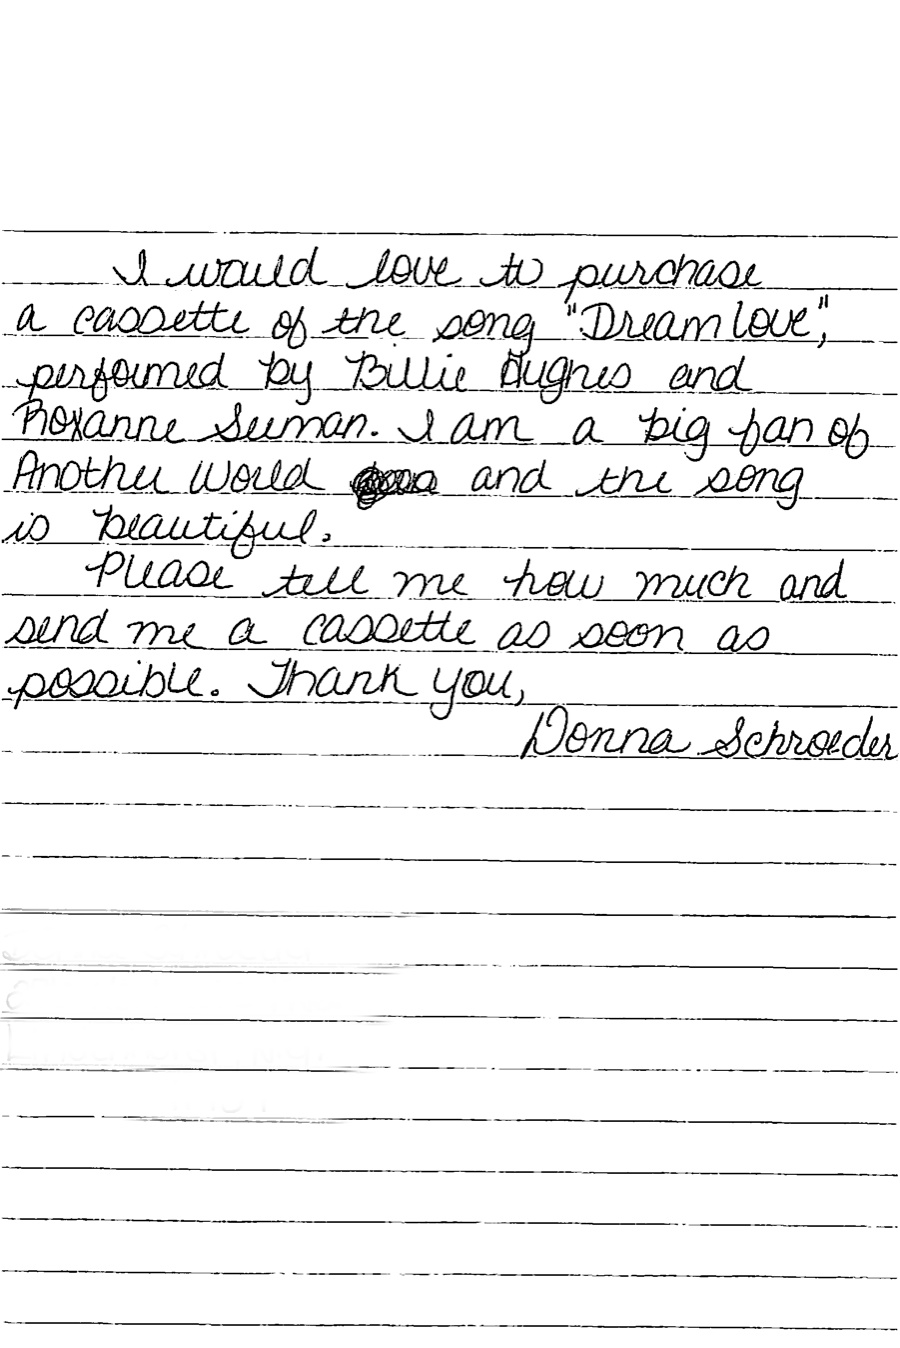 I would love to purchase
a cassette of the song "Dreamlove",
performed by Billie Hughes and
Roxanne Seeman. I am a big fan of
Another World and the song
is beautiful.
Please tell me how much and
send me a cassette as soon as
possible. Thank you,
Donna Schroeder